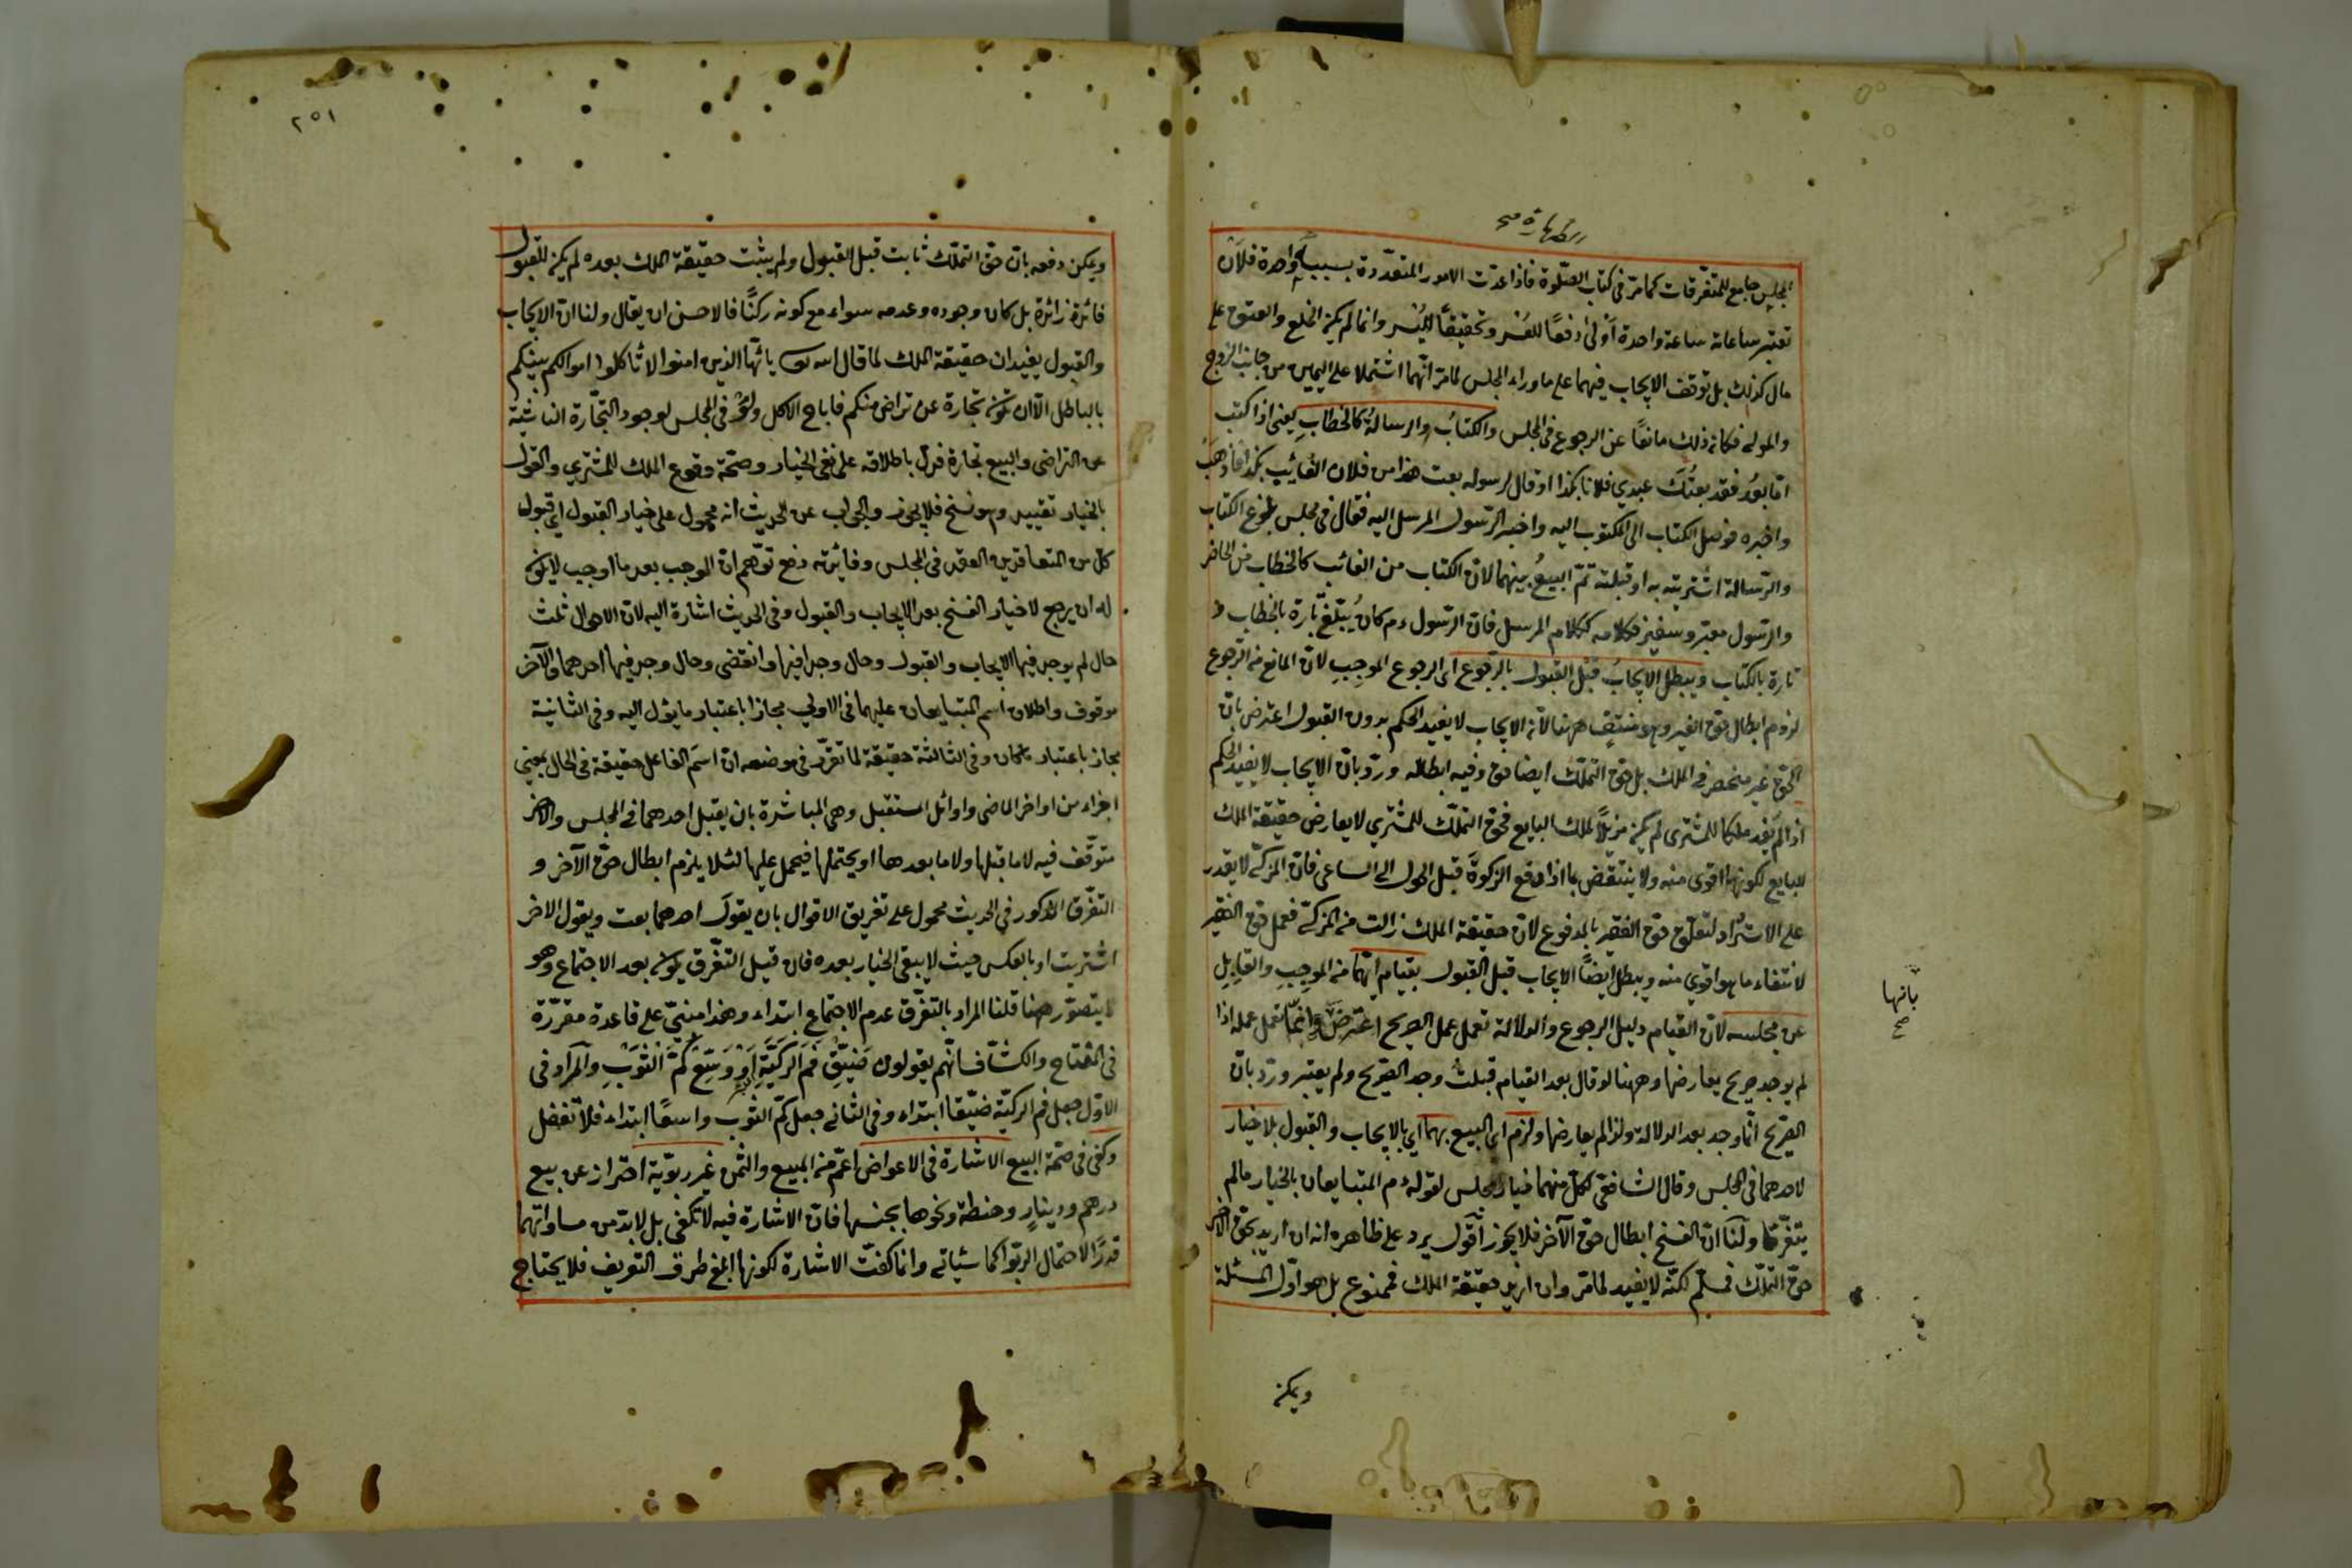 الطهارة صح
المجلس جامع للمتفرقات كما مرّ في كتاب الصّلوة فاذا عدّت الامور المتعدّدة بسببه واحدة فلأن
تعتبر ساعاته ساعة واحدة أولى دفعًا للعُسْر وتحقيقًا لليُسر وانما لم يكن الخلع والعتق على
مال كذلك بل توقف الايجاب فيهما على ما وراء المجلس لما مرّ انّهما اشتملا على اليمين من جانب الزوج
والمولى فكان ذلك مانعًا عن الرجوع في المجلس والكتابُ والرسالةُ كالخطابِ يعنى اذا كتب
امّا بعدُ فقد بعتُكَ عبدي فلانا بكذا او قال لرسوله بعت هذا من فلان الغائب بكذا فاذهَبْ
واخبره فوصل الكتاب الى المكتوب اليه واخبر الرّسول المرسل اليه فقال في مجلس بلوغ الكتاب
والرّسالة اشتريته به او قبلته تمّ البيعُ بينهما لانّ الكتاب من الغائب كالخطاب من الحاضر
والرّسول معبّر وسفير فكلامه ككلام المرسل فانّ الرّسول ءم كانُ يبلّغ تارة بالخطاب و
تارة بالكتاب ويبطل الايجابُ قبل القبول بالرّجوع اى الرجوع الموجِبِ لانّ المانع من الرجوع
لزوم ابطال حقّ الغير وهو منتفٍ ههنا لانّ الايجاب لا يفيد الحكم بدون القبول اعترض بانّ
الحقّ غير منحصر في الملك بل حقّ التملّك ايضا حق وفيه ابطاله وردّ بانّ الايجاب لا يفيد الحكم
اذا لم يُفِد ملكا للمشترى لم يكن مزيلًا لملك البايع فحقّ التملّك للمشتري لا يعارض حقيقة الملك
للبايع لكونها اقوى منه ولا ينتقض بما اذا دفع الزكوة قبل الحول الى الساعى فانّ المزكّى لا يقدر
على الاسترداد لتعلّق حقّ الفقير بالمدفوع لانّ حقيقة الملك زالت من المزكّى فعمل حق الفقير
لانتفاء ما هو اقوي منه ويبطل ايضًا الايجاب قبل القبول بقيام ايّهما من الموجِبِ والقابِلِ
عن مجلسه لانّ القيام دليل الرجوع والدلالة تعمل عمل الصريح اعترض وانّما تعمل عمله اذا
بانها
صح
لم يوجد صريح يعارضها وههنا لو قال بعد القيام قبلتُ وجد الصّريح ولم يعتبر وردّ بانّ
الصّريح انّما وجد بعد الدلالة ولذا لم يعارضها ولزم اى البيع بهما اي بالايجاب والقبول بلا خيار
لاحدهما في المجلس وقال الشافعى لكلّ منهما خيار المجلس لقوله ءم المتبايعان بالخيار ما لم
يتفرّقا ولَنَا انّ الفسخ ابطال حقّ الآخر فلا يجوز أقول يرد على ظاهره انه ان اريد بحق الآخر
حقّ التملّك فمسلّم لكنّه لا يفيد لما مرّ وان اريد حقيقة الملك فممنوع بل هو اوّل المسئلة
ويمكن
٢٥١
ويمكن دفعه بانّ حق التملّك ثابت قبل القبول ولم يثبت حقيقة الملك بعده لم يكن للقبول
فائدة زائدة بل كان وجوده وعدمه سواء مع كونه ركنًا فالاحسن ان يقال ولنا انّ الايجاب
والقبول يفيدان حقيقة الملك لما قال اسه تعـ يا ئهّا الذين امنوا لا تأكلوا اموالكم بينكم
بالباطل الّا ان تكون تجارة عن تراض منكم فاباح الاكل ولو في المجلس لوجود التجّارة الناشئة
عن التراضى والبيع تجارة فدلّ باطلاقه على نفى الخيار وصحّة وقوع الملك للمشتري والقول
بالخيار تقييد وهو نسخ فلا يجوز والجواب عن الحديث انه محمول على خيار القبول اي قبول
كل من المتعاقدين العقد في المجلس وفائدته دفع توّهم انّ الموجب بعد ما اوجب لا يكون
له ان يرجع لا خيار الفسخ بعد الايجاب والقبول وفي الحديث اشارة اليه لانّ الاحوال ثلث
حال لم يوجد فيها الايجاب والقبول وحال وجدا فيها وانقضى وحال وجد فيها احدهما والآخر
موقوف واطلاق اسم المتبايعان عليهما في الاولي مجازا باعتبار ما يؤل اليه وفي الثانية
مجاز باعتبار ما كان وفي الثالثة حقيقة لما تقرّر في موضعه انّ اسم الفاعل حقيقة في الحال بمعني
اجزاء من اواخر الماضى واوائل المستقبل وهى المباشرة بان يقبل احدهما في المجلس والآخر
متوقّف فيه لا ما قبلها ولا ما بعدها او يحتملها فيحمل عليها لئلا يلزم ابطال حقّ الآخر و
التفرّق المذكور في الحديث محمول على تفريق الاقوال بان يقول احدهما بعت ويقول الاخر
اشتريت او بالعكس حيث لا يبقى الخيار بعده فان قيل التفرّق يكون بعد الاجتماع وهو
لا يتصوّر ههنا قلنا المراد بالتفرّق عدم الاجتماع ابتداء وهذا مبنيّ على قاعدة مقرّرة
في المفتاح والكشّاف انّهم يقولون ضَيِّقْ فَمَ الرَّكِيَّةِ او وَسِّعْ كُمَّ الثَّوْبِ والمراد في
الاوّل جعل فم الركيّة ضيّقا ابتداء وفى الثانى جعل كمّ الثوب واسعًا ابتداء فلا تغفل
وكفى في صحّة البيع الاشارة في الاعواض اعمّ من المبيع والثمن غير ربويّة احتراز عن بيع
درهم ودينارٍ وحنطة ونحوها بجنسها فانّ الاشارة فيه لا تكفى بل لا بدّ من مساواتهما
قدرًا لاحتمال الرّبوا كما سيأتى وانما كفتْ الاشارة لكونها ابلغ طرق التعريف فلا يحتاج